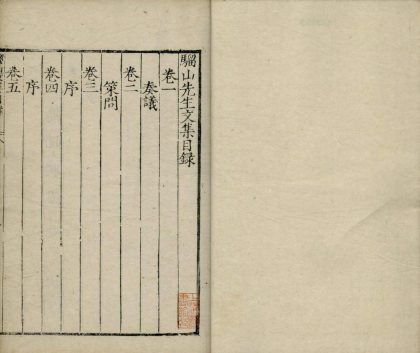 騮山先生文集目錄
卷一
奏議
卷二
策問
卷三
序
卷四
序
卷五